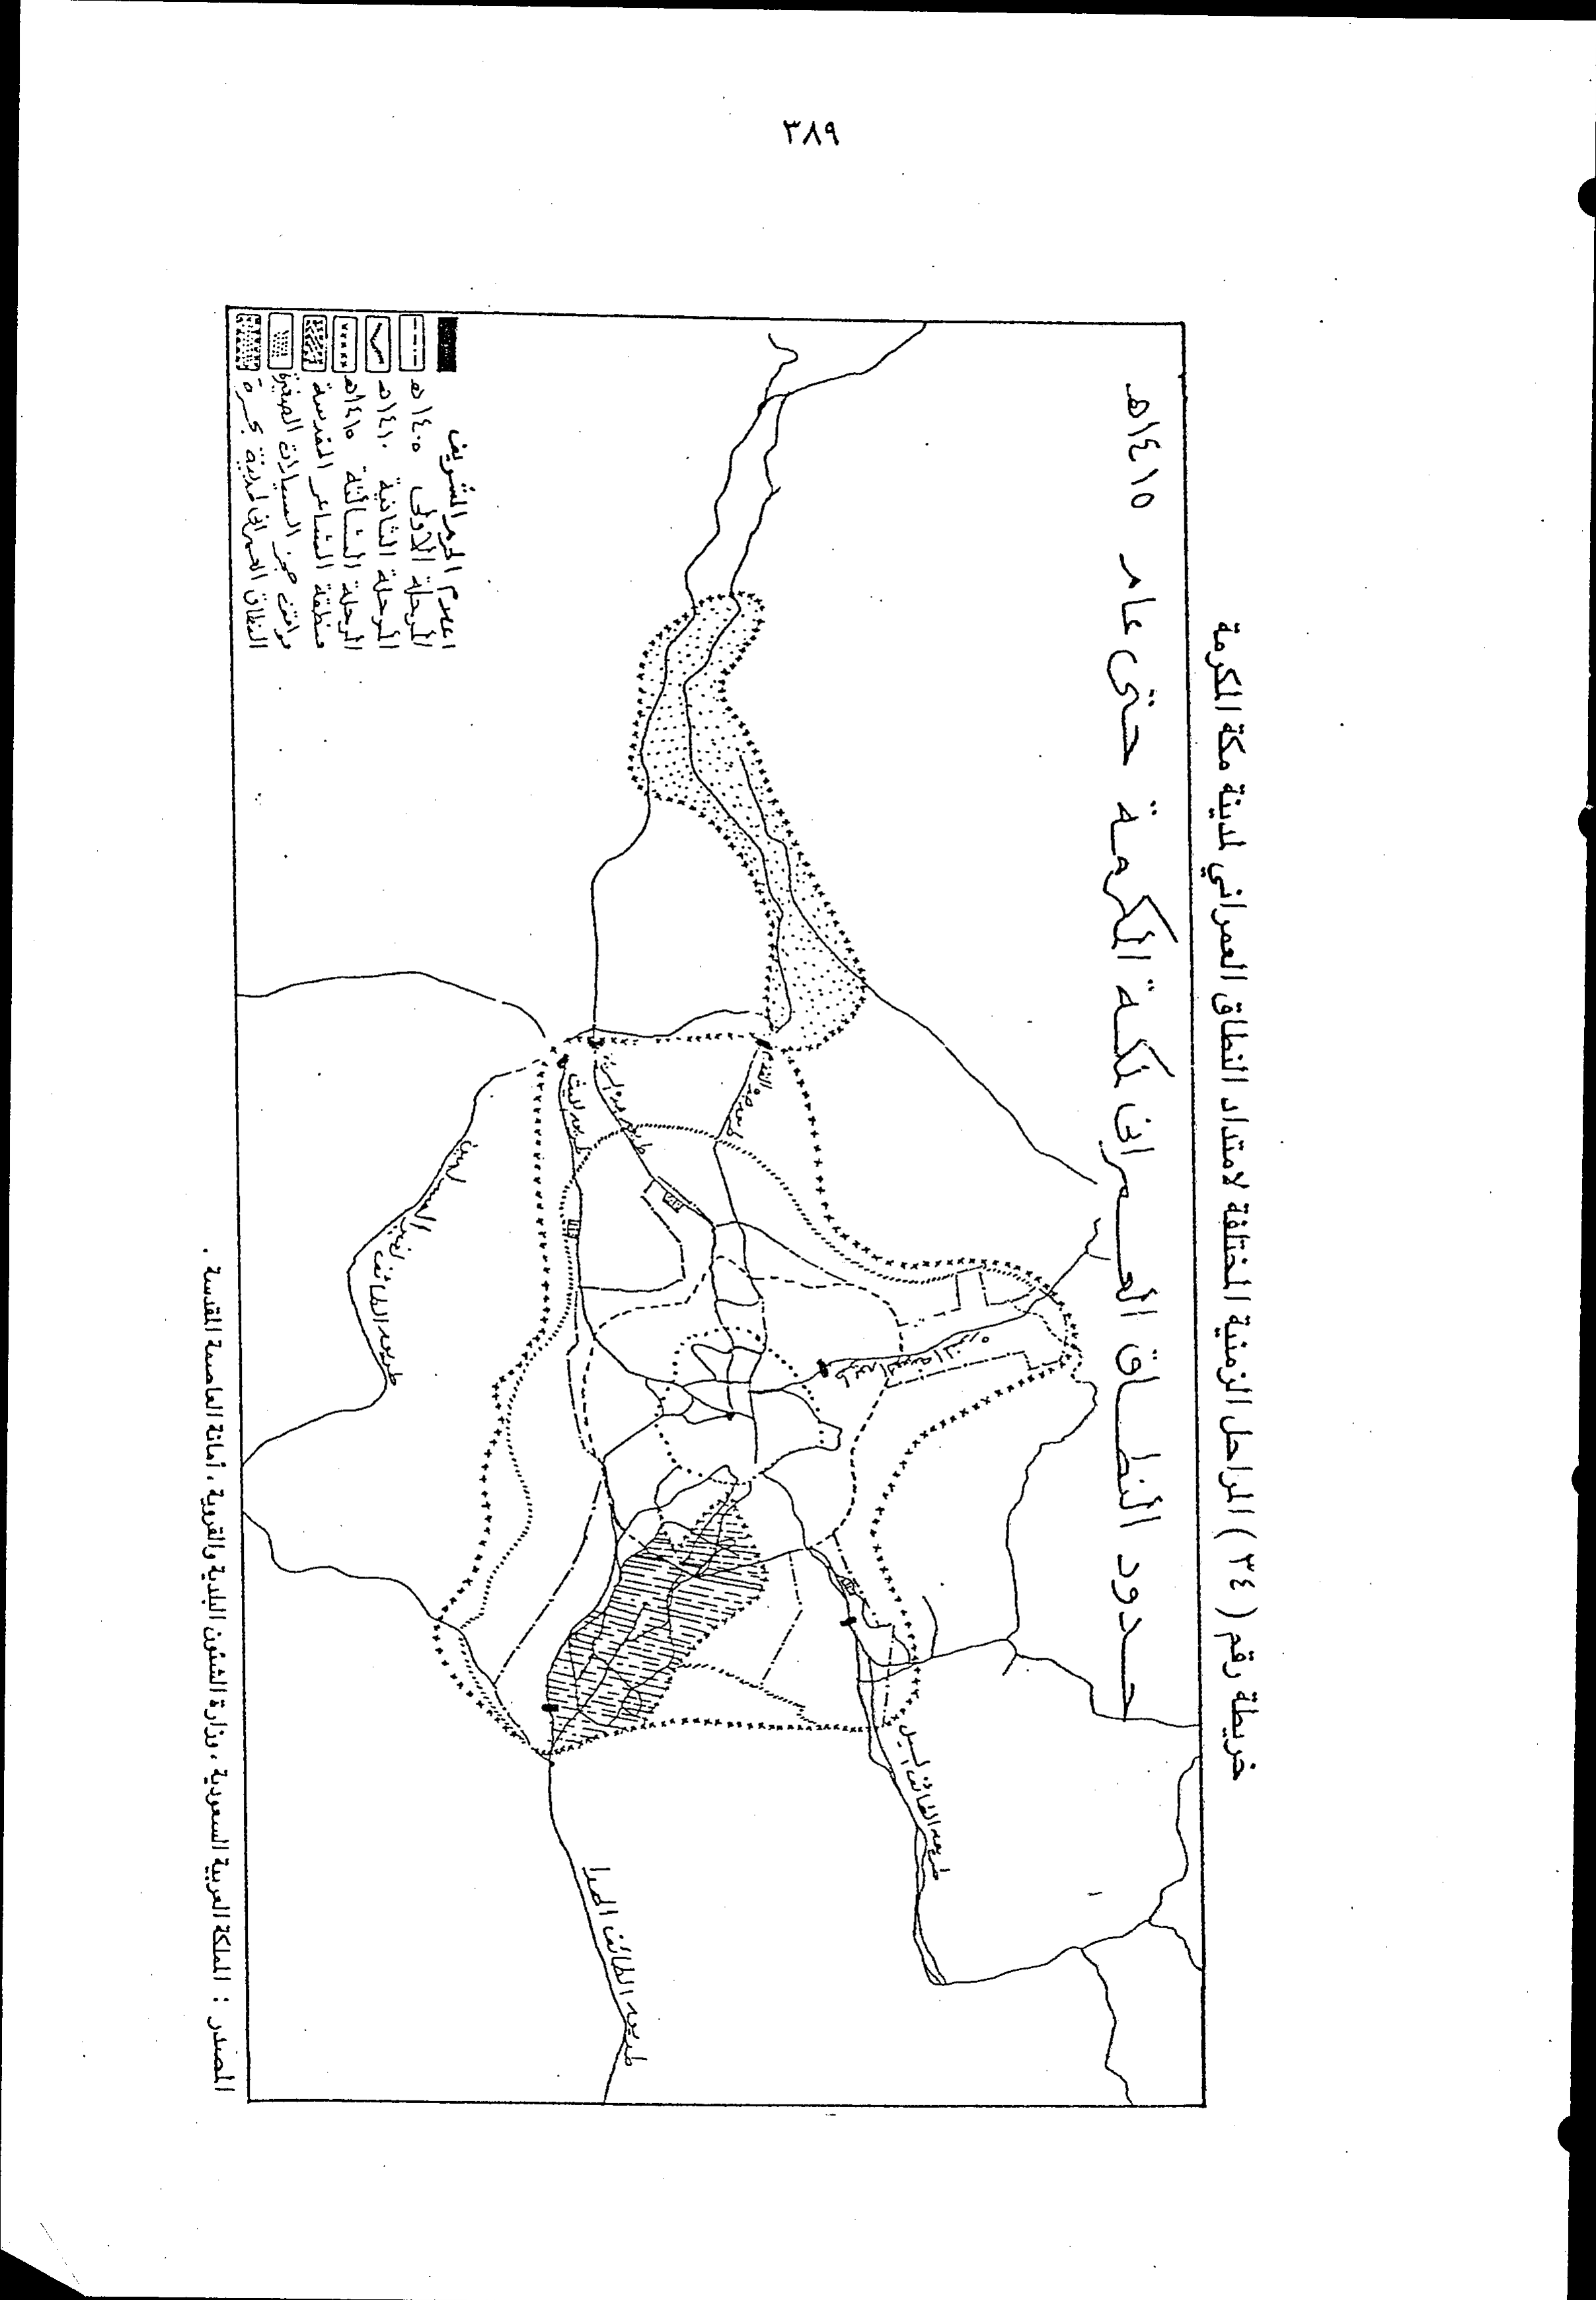 ٣٨٩
خريطة رقم ( ٣٤ ) المراحل الزمنية المختلفة لامتداد النطاق العمراني لمدينة مكة المكرمة
حدود النطاق العمرانى لمكة المكرمة حتى عام ١٤١٥هـ
طريق الطائف السيل
طريق الطائف الهدا
طريق الليث
طريق الطائف
اعلام الحرم الشريف
المرحلة الأولى ١٤٠٥هـ
المرحلة الثانية ١٤١٠هـ
المرحلة الثالثة ١٤١٥هـ
منطقة المشاعر المقدسة
مواقف حجز السيارات الصغيرة
النطاق العمرانى لمدينة بحرة
المصدر : المملكة العربية السعودية ، وزارة الشئون البلدية والقروية ، أمانة العاصمة المقدسة .